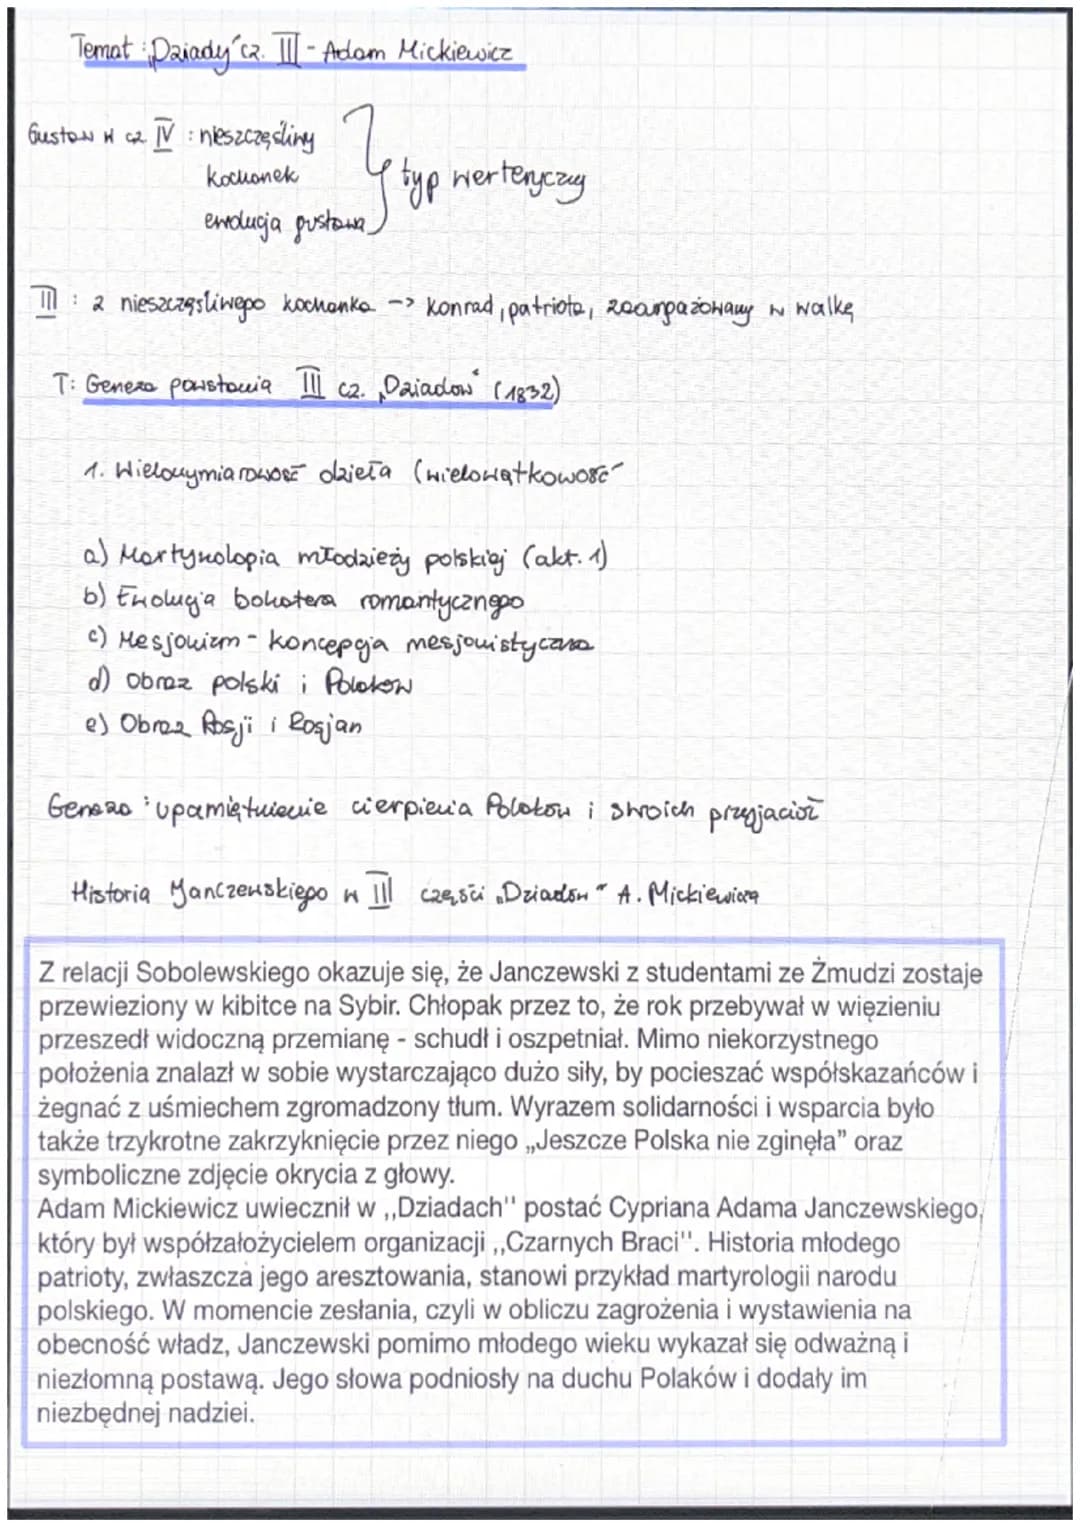 Temat: „Dziady" cz. III - Adam Mickiewicz
Gustaw w cz IV : nieszczęśliwy
kochanek
ewolucja gustawa
typ werteryczny
III : z nieszczęśliwego kochanka -> Konrad, patriota, zaangażowany w walkę
T: Geneza powstania III cz. „Dziadów" (1832)
1. Wielowymiarowość dzieła (wielowątkowość
a) Martyrologia młodzieży polskiej (akt. 1)
b) Ewolucja bohatera romantycznego
c) Mesjanizm - koncepcja mesjanistyczna
d) Obraz polski i Polaków
e) Obraz Rosji i Rosjan
Geneza : upamiętnienie cierpienia Polaków i swoich przyjaciół
Historia Janczewskiego w III części „Dziadów" A. Mickiewicza
Z relacji Sobolewskiego okazuje się, że Janczewski z studentami ze Żmudzi zostaje
przewieziony w kibitce na Sybir. Chłopak przez to, że rok przebywał w więzieniu
przeszedł widoczną przemianę - schudł i oszpetniał. Mimo niekorzystnego
położenia znalazł w sobie wystarczająco dużo siły, by pocieszać współskazańców i
żegnać z uśmiechem zgromadzony tłum. Wyrazem solidarności i wsparcia było
także trzykrotne zakrzyknięcie przez niego „Jeszcze Polska nie zginęła" oraz
symboliczne zdjęcie okrycia z głowy.
Adam Mickiewicz uwiecznił w ,,Dziadach'' postać Cypriana Adama Janczewskiego,
który był współzałożycielem organizacji ,,Czarnych Braci''. Historia młodego
patrioty, zwłaszcza jego aresztowania, stanowi przykład martyrologii narodu
polskiego. W momencie zesłania, czyli w obliczu zagrożenia i wystawienia na
obecność władz, Janczewski pomimo młodego wieku wykazał się odważną i
niezłomną postawą. Jego słowa podniosły na duchu Polaków i dodały im
niezbędnej nadziei.